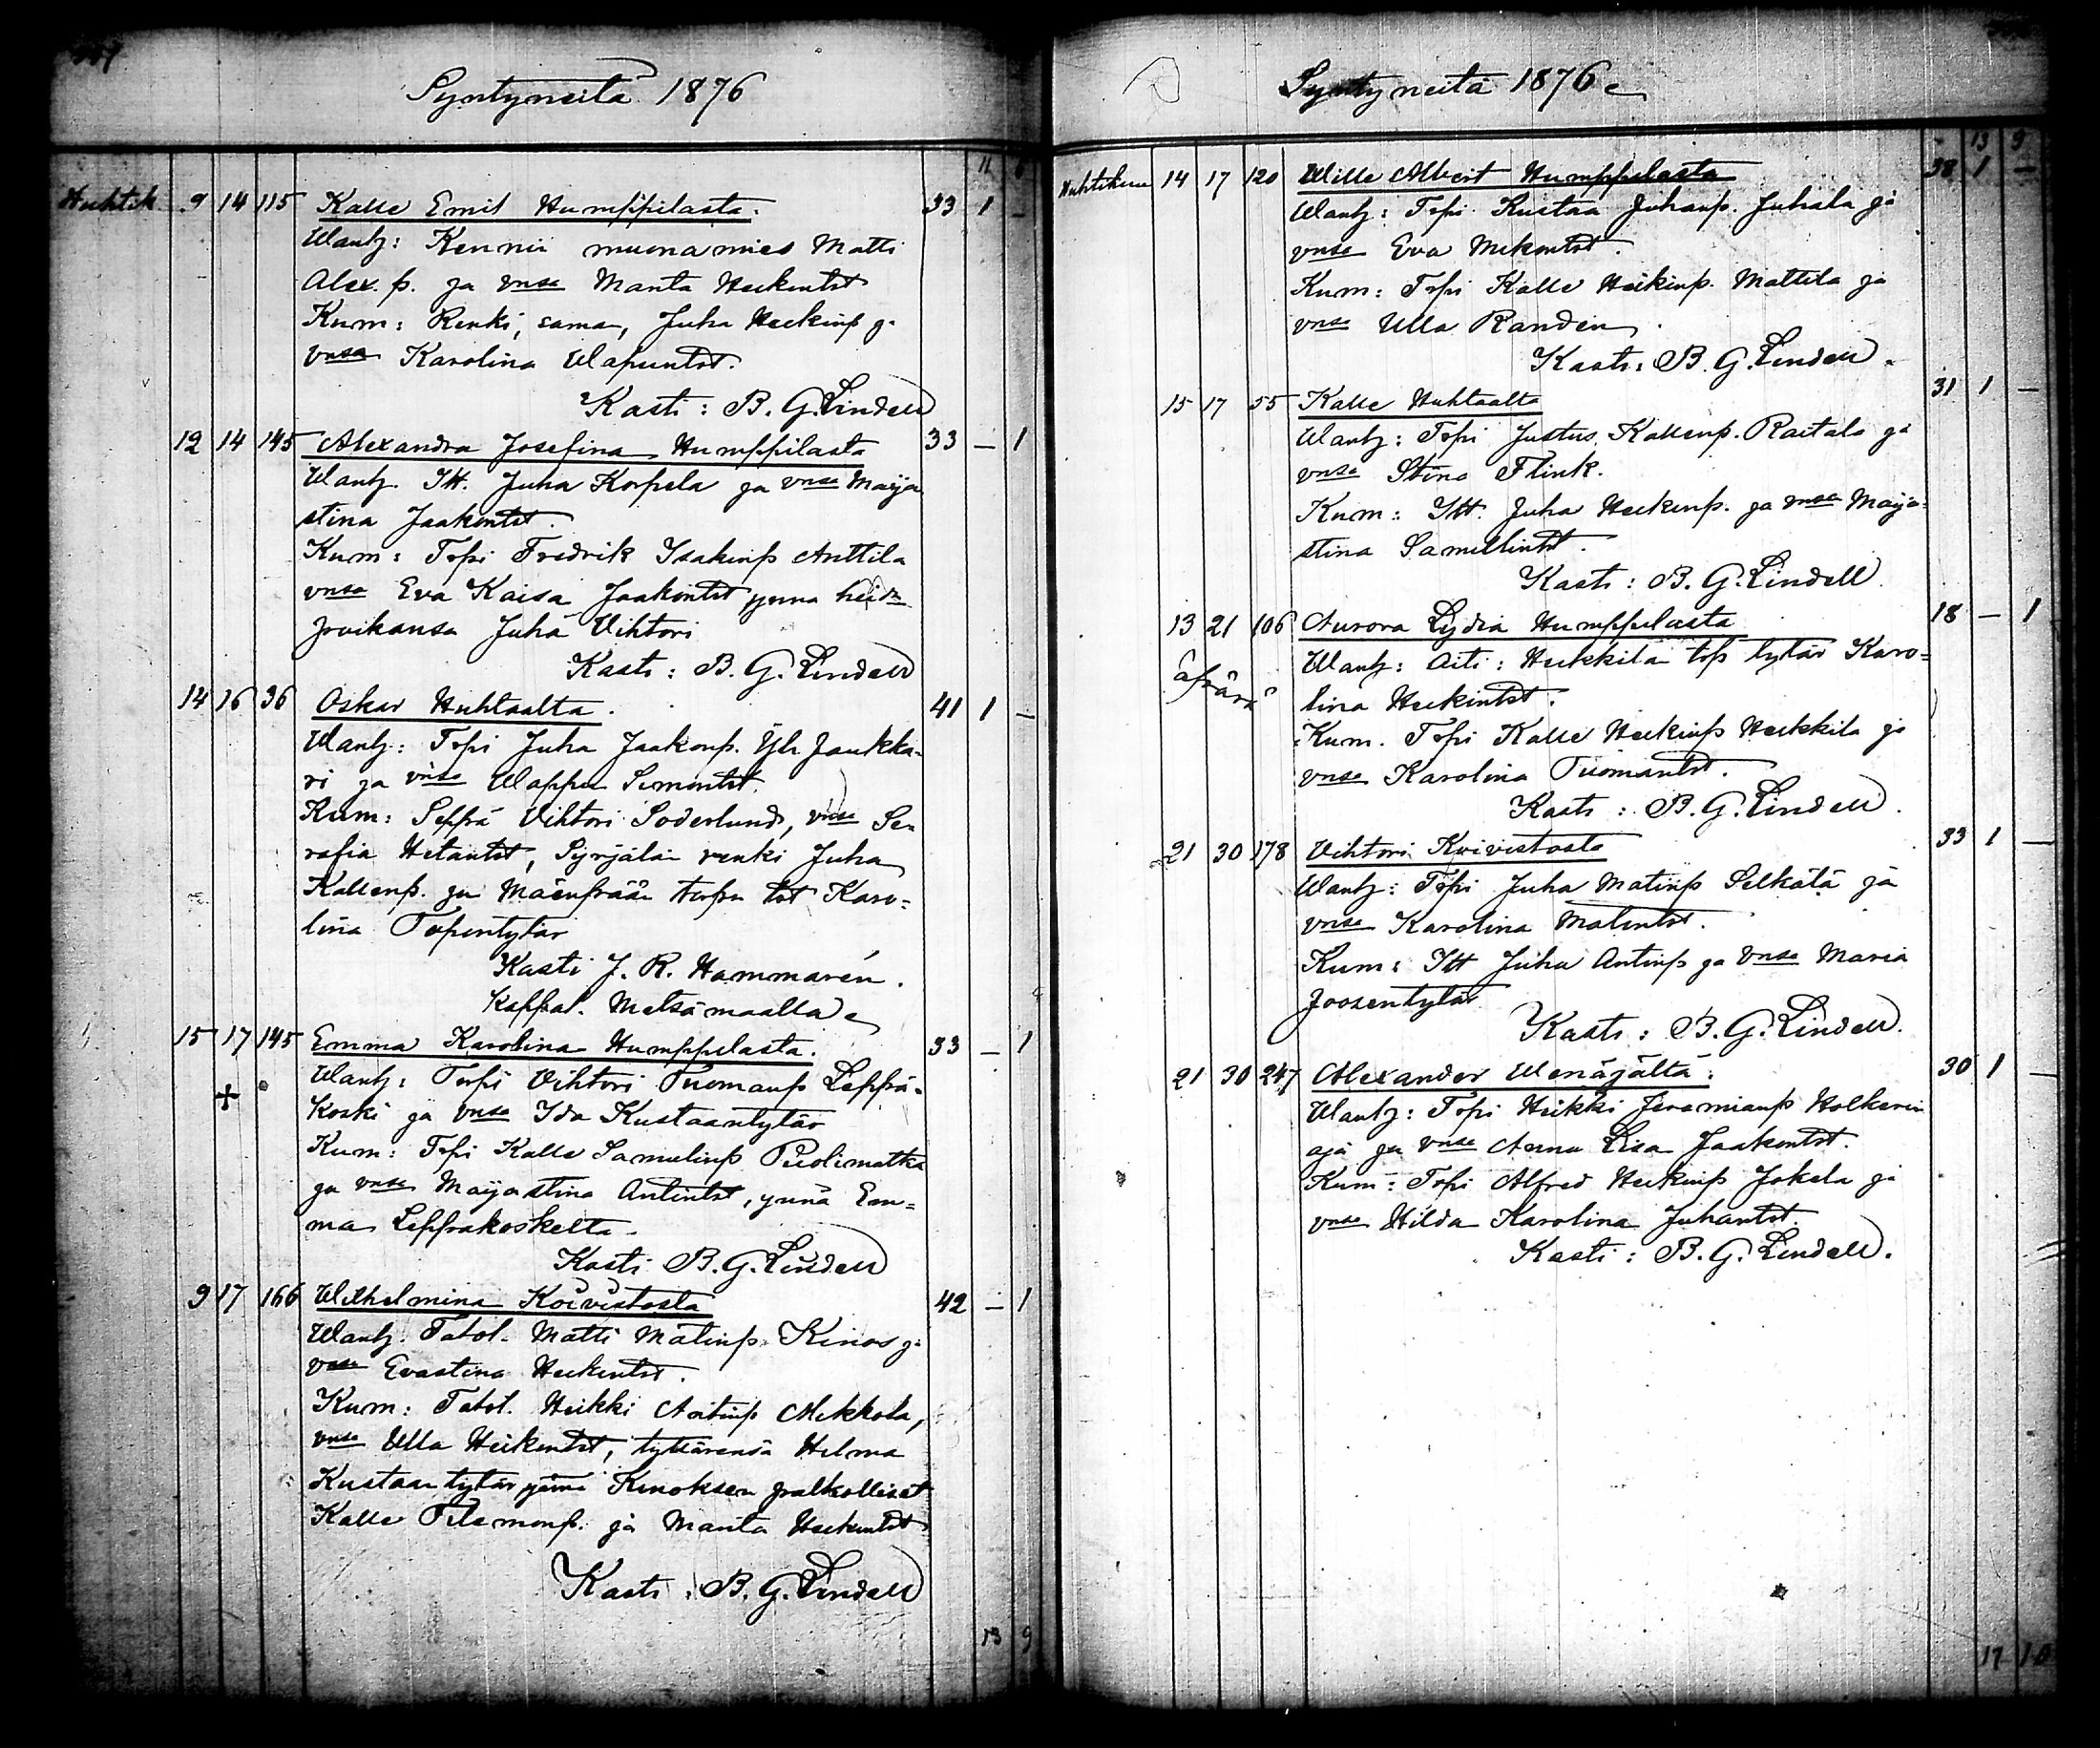 Syntyneitä 1876
11 6
Huhtik. 9 14 115 Kalle Emil Humppilasta. 33 1 –
Wanh: Kennin muonamies Matti
Alex. p. ja vnsa Manta Heikintst
Kum: Renki, sama, Juha Heikinp ja
vnsa Karolina Wapuntst.
Kasti: B. G. Lindell
12 14 145 Alexandra Josefina Humppilasta 33 – 1
Wanh. Itt. Juha Korpela ja vnsa Maija
stina Jaakontst.
Kum: Torpi Fredrik Isakinp Anttila
vnsa Eva Kaisa Jaakontst ynna heidn
poikansa Juha Vihtori
Kasti: B. G. Lindell
14 16 36 Oskar Huhtaalta. 41 1 –
Wanh: Torpi Juha Jaakonp. Yli Jaukka-
ri ja vnsa Wappu Simontst.
Kum: Seppä Vihtori Söderlund, vnsa Se-
rafia Hetantst, Syrjälän renki Juha
Kallenp. ja Mäenpään torpn tst Karo=
lina Topentytär
Kasti J. R. Hammarén.
Kappal. Metsämaalla
15 17 145 Emma Karolina Humppilasta. 33 – 1
+ Wanh: Torpi Vihtori Tuomanp Leppä-
koski ja vnsa Ida Kustaantytär
Kum: Torpi Kalle Samulinp Puolimatka
ja vnsa Maijastina Antintst, ynnä Em=
ma Leppäkoskelta.
Kasti B. G. Lindell
9 17 166 Wilhelmina Koivistosta 42 – 1
Wanh. Talol. Matti Matinp. Kinos ja
vnsa Evastina Heikintst.
Kum: Talol. Heikki Antinp Mikkola,
vnsa Ulla Heikintst, tyttärensä Hilma
Kustaantytär ynnä Kinoksen palkolliset
Kalle Filemonp. ja Manta Heikintst
Kasti: B. G. Lindell
13 9
Syntyneitä 1876
13 9
Huhtikuu 14 17 120 Wille Albert Humppilasta 38 1 –
Wanh: Torpi Kustaa Juhanp. Juhala ja
vnsa Eva Mikontst.
Kum: Torpi Kalle Heikinp. Mattila ja
vnsa Ulla Randen.
Kasti: B. G. Lindell.
15 17 55 Kalle Huhtaalta 31 1 –
Wanh: Torpi Justus Kallenp. Raitala ja
vnsa Stina Flink.
Kum: Itt. Juha Heikinp. ja vnsa Maija=
stina Samulintst.
Kasti: B. G. Lindell.
13 21 106 Aurora Lydia Humppilasta 18 – 1
äpärä Wanh: Äiti: Heikkilän torp tytär Karo=
lina Heikintst.
Kum. Torpi Kalle Heikinp Heikkilä ja
vnsa Karolina Tuomantst.
Kasti: B. G. Lindell.
21 30 178 Vihtori Koivistosta 33 1 –
Wanh: Torpi Juha Matinp Selkälä ja
vnsa Karolina Matintst.
Kum: Itt Juha Antinp ja vnsa Maria
Joosentytär
Kasti: B. G. Lindell.
21 30 247 Alexander Wenäjältä. 30 1 –
Wanh: Torpi Heikki Jeremianp Holkerin
oja ja vnsa Anna Lisa Jaakontst.
Kum: Torpi Alfred Heikinp Jokela ja
vnsa Hilda Karolina Juhantst.
Kasti: B. G. Lindell.
17 10